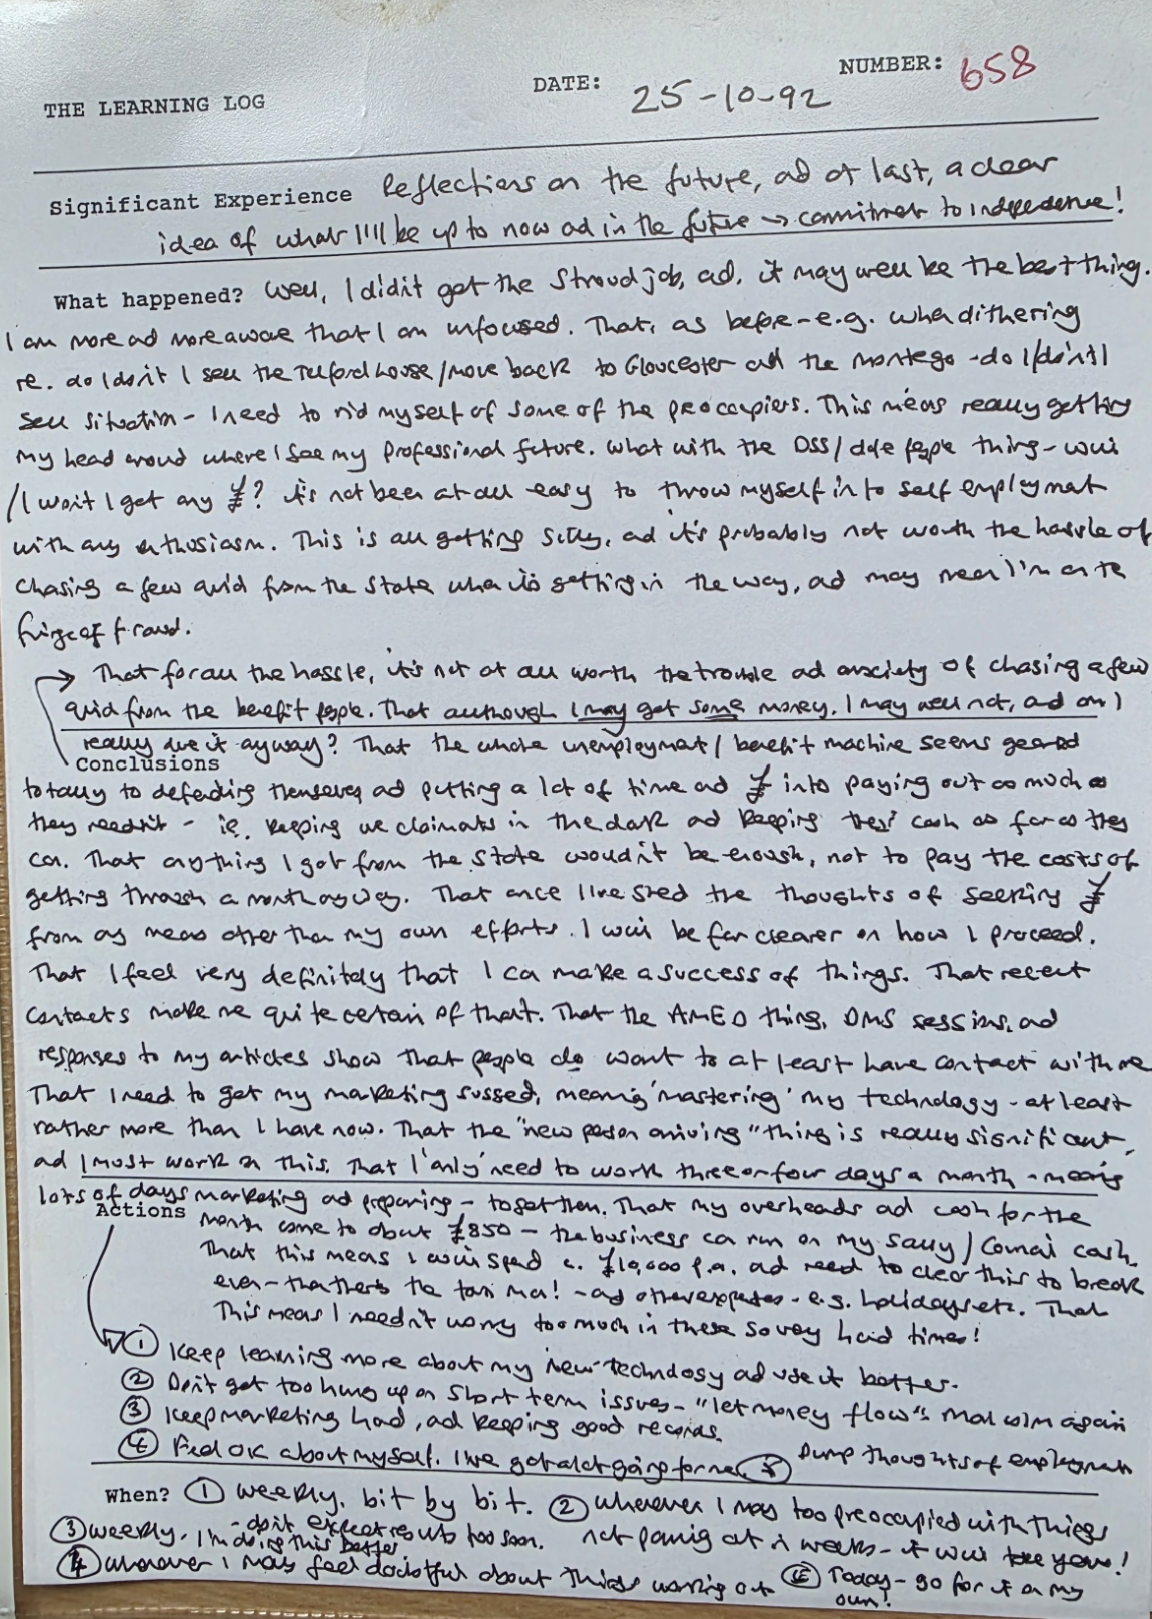 THE LEARNING LOG DATE: 25-10-92 NUMBER: 658
Significant Experience Reflections on the future, ad at last, a clear
idea of what I'll be up to now ad in the future → commitment to independence!
What happened? Well, I didn't get the Stroud job, ad, it may well be the best thing.
I am more ad more aware that I am unfocused. That, as before - e.g. when dithering
re. do I don't I sell the Telford house / move back to Gloucester and the montego - do I/don't I
sell situation - I need to rid myself of some of the preoccupiers. This means really getting
my head around where I see my professional future. What with the DSS / dole people thing - will
/I won't I get any £? it's not been at all easy to throw myself into self employment
with any enthusiasm. This is all getting silly, ad it's probably not worth the hassle of
chasing a few quid from the State when it's getting in the way, ad may mean I'm on the
fringe of fraud.
→ That for all the hassle, it's not at all worth the trouble ad anxiety of chasing a few
quid from the benefit people. That although I may get some money, I may well not, and am I
really due it anyway? That the whole unemployment / benefit machine seems geared
Conclusions
totally to defending themselves ad putting a lot of time and £ into paying out as much as
they needn't - ie. keeping we claimants in the dark ad keeping their cash as far as they
can. That anything I got from the State wouldn't be enough, not to pay the costs of
getting through a month anyway. That once I've shed the thoughts of seeking £
from any means other than my own efforts. I will be far clearer on how I proceed.
That I feel very definitely that I can make a success of things. That recent
contacts make me quite certain of that. That the AMED thing, DMS sessions, ad
responses to my articles show that people do want to at least have contact with me
That I need to get my marketing sussed, meaning 'mastering' my technology - at least
rather more than I have now. That the "new person arriving" thing is really significant,
ad I must work on this. That I 'only' need to work three or four days a month - means
lots of days marketing ad preparing - to get them. That my overheads ad cash for the
Actions month come to about £850 - the business can run on my salary / Cornai cash.
That this means I will spend c. £10,000 p.a. ad need to clear this to break
even - then there's the tax man! - ad other expenses - e.g. holidays etc. That
This means I needn't worry too much in these so very hard times!
① Keep learning more about my new technology ad use it better.
② Don't get too hung up on short term issues - "let money flow" Malcolm again
③ Keep marketing hard, ad keeping good records.
④ Feel OK about myself. I've got a lot going for me ⑤ Dump thoughts of employment
When? ① weekly, bit by bit. ② whenever I may too preoccupied with things
- don't expect results too soon. not panic at weeks - it will take years!
③ weekly. I'm doing this better
④ whenever I may feel doubtful about things working out ⑤ Today - go for it on my
own!